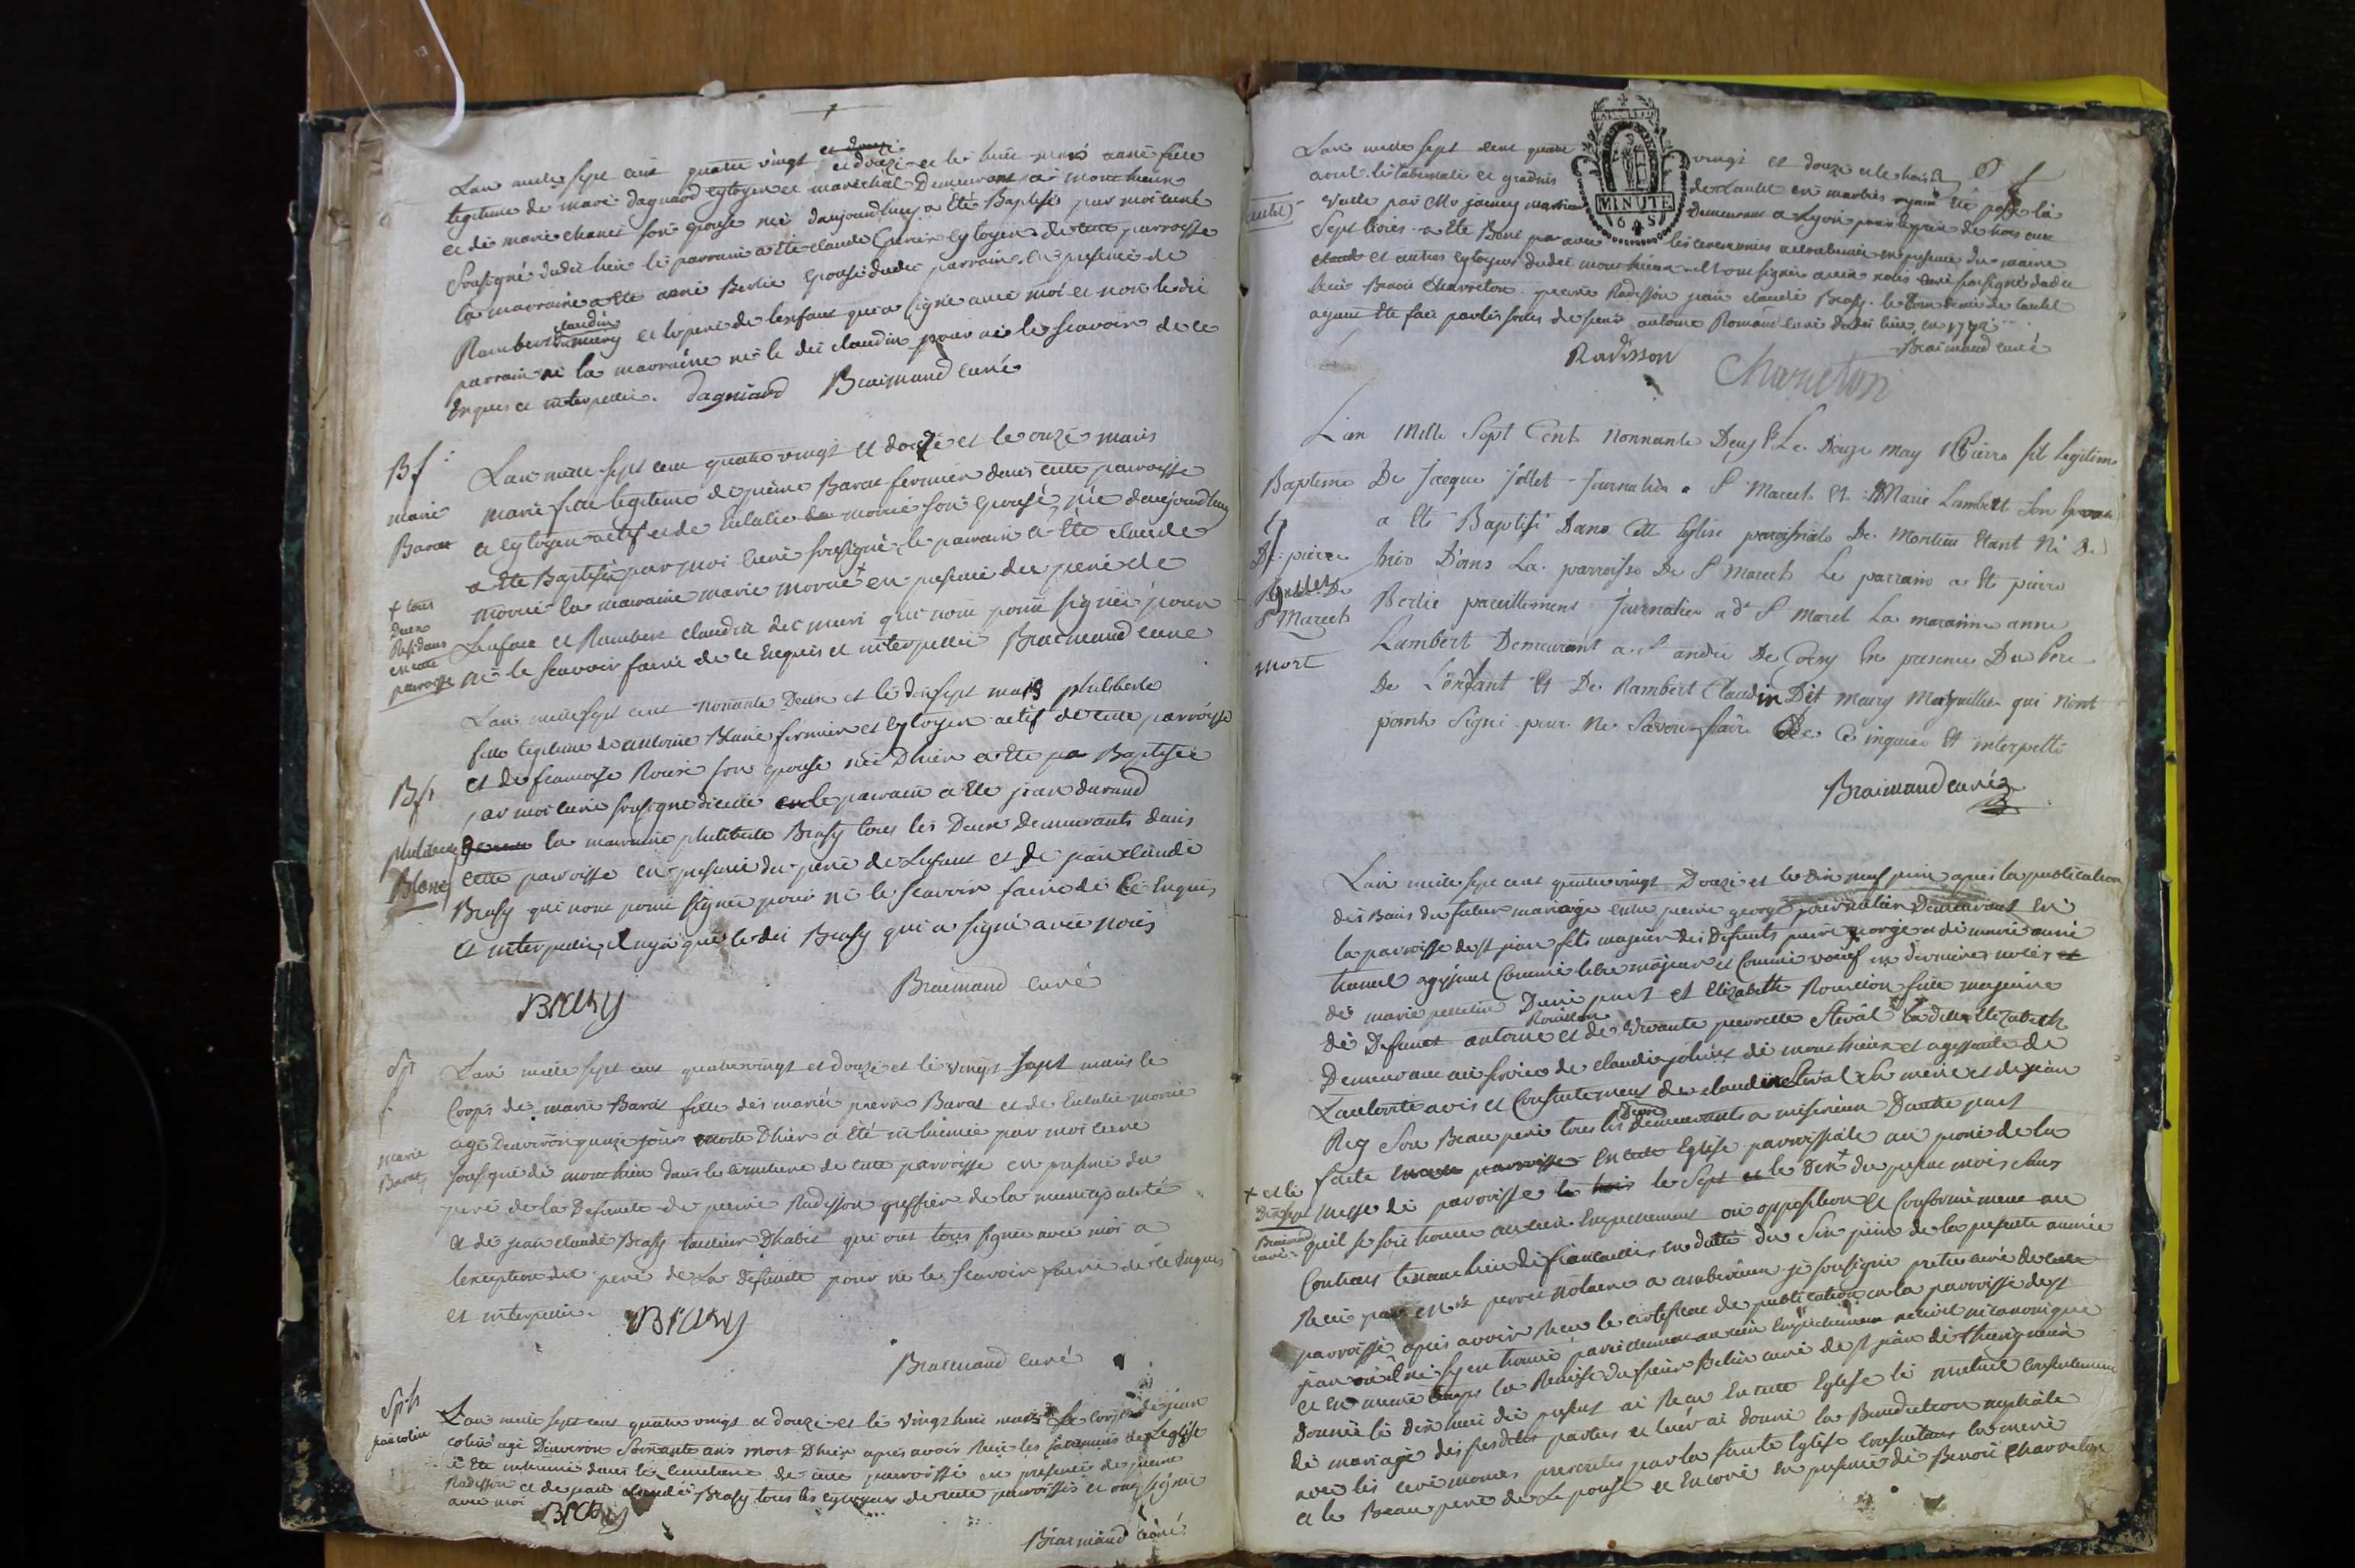 Lan mille sept cent quatre vingt et douze et le huit mars anne fille
legitime de marc dagnard cytoyen et marechal demeurant a montheux
et de marie chanet son epouse née daujourdhuy a été Baptisée par moi curé
sousigné dudit lieu le parrain a été claude cytoyen de cette parroisse
la marraine a été anne Berlie epouse dudit parrain en presence de
Rambert claudin et le pere de lenfant qui a signé avec moi et non le dit
parrain ni la marraine ni le dit claudin pour ne le scavoir de ce
enquis et interpellé. dagniard Braimand curé
Bf
marie
Barat
Lan mille sept cent quatre vingt et douze et le onze mars
marie fille legitime de pierre Barat fermier dans cette parroisse
et cytoyen actif et de eulalie morié son epouse née daujourdhuy
a été Baptisée par moi curé sousigné le parrain a été claude
morié la marraine marie morié + en presence du pere de
Lenfant et Rambert claudin dit muri qui nont point signé pour
ne le scavoir faire de ce enquis et interpellé Braimand curé
+ tous
deux
Residans
en cette
parroisse
Lan mille sept cent nonante Deux et le dix sept mars philiberte
fille legitime de antoine Blanc fermier et cytoyen actif de cette parroisse
et de francoise Roux son epouse née Dhier a été Baptisée
par moi curé sousigné le parrain a été jean durand
la marraine philiberte Brasy tous les Deux demeurants dans
cette parroisse en presence du pere de Lenfant et de jean claude
Brasy qui nont point signé pour ne le scavoir faire de ce Enquis
et interpellé il ny a que le dit Brasy qui a signé avec nous
Bf
philiberte
Blanc
Braimand curé
BRASY
Spr
f.
marie
Barat
Lan mille sept cent quatre vingt et douze et le vingt sept mars le
Corps de marie Barat fille des mariés pierre Barat et de Eulalie morié
agé Denviron quinze jours morte Dhier a été inhumée par moi curé
sousigné de montheux dans le cimetiere de cette parroisse en presence du
pere de la Defunte de pierre Radisson greffier de la municipalité
et de jean claude Brasy tailleur Dhabit qui ont tous signé avec moi a
lexception du pere de La Defunte pour ne le scavoir faire de ce Enquis
et interpellé. BRASY
Braimand curé
Sprh
jean colin
Lan mille sept cent quatre vingt et douze et le vingt huit mars Le corps de jean
colin agé Denviron Soixante ans mort Dhier apres avoir Reçu les sacremens de Leglise
a été inhumé dans le cimetiere de cette parroisse en presence de pierre
Radisson et de jean claude Brasy tous les cytoyens de cette parroisse et ont signé
avec moi BRASY
Braimand curé
Lan mille sept cent quatre vingt et douze et le
avril le tabernacle et gradins de Lautel en marbre ayant été posé là
autel
MINUTE
6 S
Demeurant a Lyon
a été Beni les ceremonies accoutumées en presence du maire
et autres cytoyens dudit montheux et ont signés avec nous curé sousigné dudit
lieu Benoit Charreton pierre Radisson jean claude Brasy.
ayant été fait par les soins de sieur antoine Romand curé dudit lieu en 1792
Braimand curé
Radisson
Charreton
Lan Mille Sept Cent Nonnante Deux Et Le Douze May Pierre fil Legitime
De Jacque jollet journalier a St Marcel Et Marie Lambert Son Epouse
a Eté Baptisé Dans Cette Eglise paroissiale De Montieu Etant Né D
hier Dans La parroisse De St Marcel Le parrain a Eté pierre
Berlie pareillement journalier a dt St Marcel La maraine anne
Lambert Demeurant a St andré De Corcy En presence Du Pere
De L'enfant Et De Rambert Claudin Dit Meury Marguillier qui Nont
point Signé pour Ne Savoir faire De Ce inquis Et interpellé
Baptisme
De pierre
jollet De
St Marcel
mort
Braimand curé
Lan mille sept cent quatre vingt Douze et le dix neuf juin apres la publication
des Bans du futur mariage entre pierre george journalier Demeurant en
la parroisse de St jean fils majeur des Defunts pierre george et de marie anne
agissant comme libre majeur et comme veuf en dernieres noces
de marie pelletier Dune part et Elizabeth Rouillon fille majeure
de Defunt antoine Rouillon et de vivante pierrette Steval la dite Elizabeth
Demeurant au service de claude de montheux et agissante de
Lautorité avis et Consentement de claudine Steval sa mere et de jean
Rey Son Beau pere tous les Deux demeurants a miserieux Dautre part
faite en cette Eglise parroissiale au prone de la
messe de parroisse le Sept le dix + du present mois sans
quil se soit trouvé aucun Empechement ou opposition et Conformement au
+ et le
Dix sept
Braimand
curé
Contrat tenant lieu de fiancailles en datte du Six juin de la presente année
Reçu par Me perret notaire a amberieux je sousigné pretre curé de cette
parroisse apres avoir Reçu le certificat de publication en la parroisse de St
jean ou il ne syen trouve pareillement aucun Empechement civil ni canonique
et en meme temps la Remise du sieur Belin curé de St jean de thurigneux
donnée le dix huit du present ai Reçu En cette Eglise le mutuel Consentement
de mariage des susdites parties et leur ai donné la Benediction nuptiale
avec les ceremonies prescrites par la sainte Eglise Consentans la mere
et le Beau pere de Lepouse et Encore en presence de Benoit Charreton